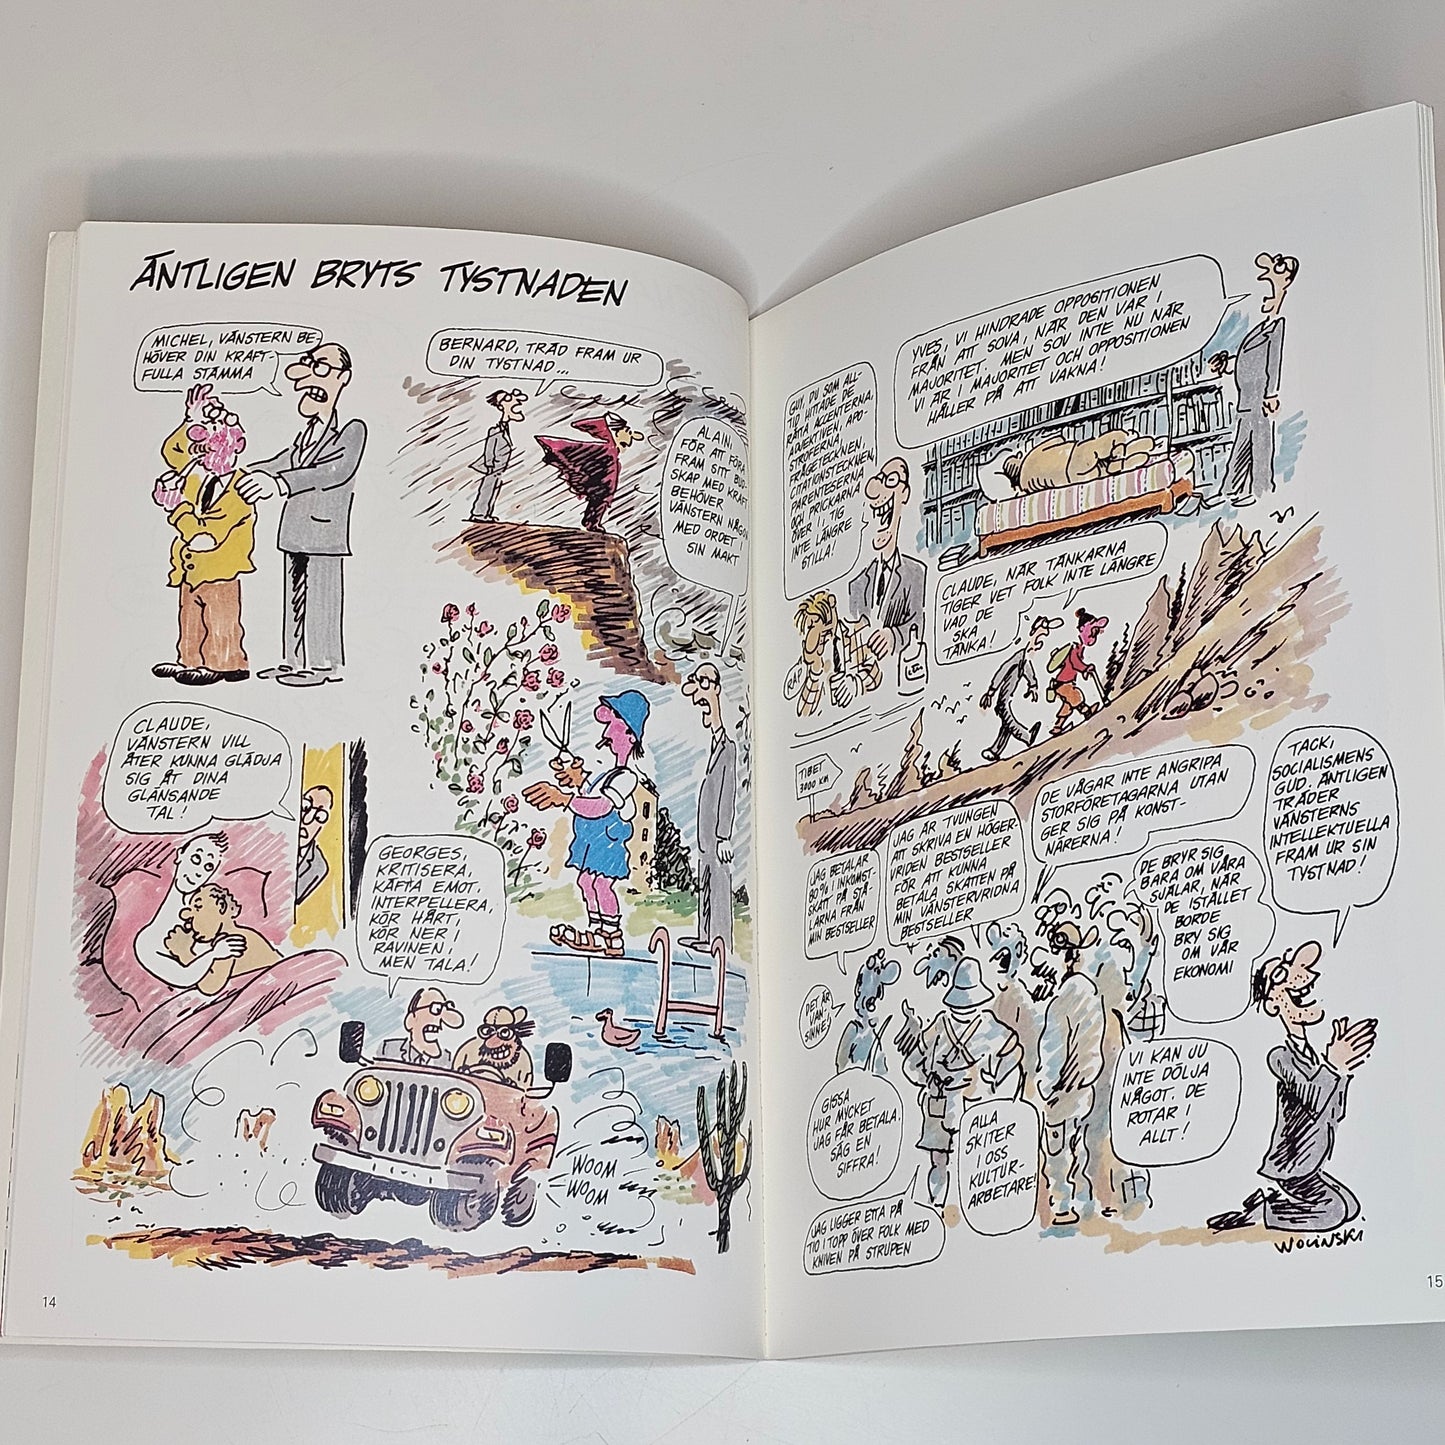 ÄNTLIGEN BRYTS TYSTNADEN
MICHEL, VÄNSTERN BE-
HÖVER DIN KRAFT-
FULLA STÄMMA
BERNARD, TRÄD FRAM UR
DIN TYSTNAD...
ALAIN,
FÖR ATT FÖRA
FRAM SITT BUD-
SKAP MED KRAFT
BEHÖVER
VÄNSTERN NÅGON
MED ORDET I
SIN MAKT
CLAUDE,
VÄNSTERN VILL
ÅTER KUNNA GLÄDJA
SIG ÅT DINA
GLÄNSANDE
TAL!
GEORGES,
KRITISERA,
KÄFTA EMOT,
INTERPELLERA,
KÖR HÅRT,
KÖR NER I
RAVINEN,
MEN TALA!
WOOM
WOOM
14
YVES, VI HINDRADE OPPOSITIONEN
FRÅN ATT SOVA, NÄR DEN VAR I
MAJORITET. MEN SOV INTE NU NÄR
VI ÄR I MAJORITET OCH OPPOSITIONEN
HÅLLER PÅ ATT VAKNA!
GUY, DU SOM ALL-
TID HITTADE DE
RÄTTA ACCENTERNA,
ADJEKTIVEN, APO-
STROFERNA,
FRÅGETECKNEN,
CITATIONSTECKNEN,
PARENTESERNA
OCH PRICKARNA
ÖVER I, TIG
INTE LÄNGRE
STILLA!
RAP
CLAUDE, NÄR TÄNKARNA
TIGER VET FOLK INTE LÄNGRE
VAD DE
SKA
TÄNKA!
TIBET
3000 KM
JAG BETALAR
80% I INKOMST-
SKATT PÅ STÅ-
LARNA FRÅN
MIN BESTSELLER
JAG ÄR TVUNGEN
ATT SKRIVA EN HÖGER-
VRIDEN BESTSELLER
FÖR ATT KUNNA
BETALA SKATTEN PÅ
MIN VÄNSTERVRIDNA
BESTSELLER
DE VÅGAR INTE ANGRIPA
STORFÖRETAGARNA UTAN
GER SIG PÅ KONST-
NÄRERNA!
DE BRYR SIG
BARA OM VÅRA
SJÄLAR, NÄR
DE ISTÄLLET
BORDE
BRY SIG
OM VÅR
EKONOMI
TACK,
SOCIALISMENS
GUD, ÄNTLIGEN
TRÄDER
VÄNSTERNS
INTELLEKTUELLA
FRAM UR SIN
TYSTNAD!
DET ÄR
VAN-
SINNE!
GISSA
HUR MYCKET
JAG FÅR BETALA.
SÄG EN
SIFFRA!
ALLA
SKITER
I OSS
KULTUR-
ARBETARE!
VI KAN JU
INTE DÖLJA
NÅGOT. DE
ROTAR I
ALLT!
JAG LIGGER ETTA PÅ
TIO I TOPP ÖVER FOLK MED
KNIVEN PÅ STRUPEN
WOLINSKI
15